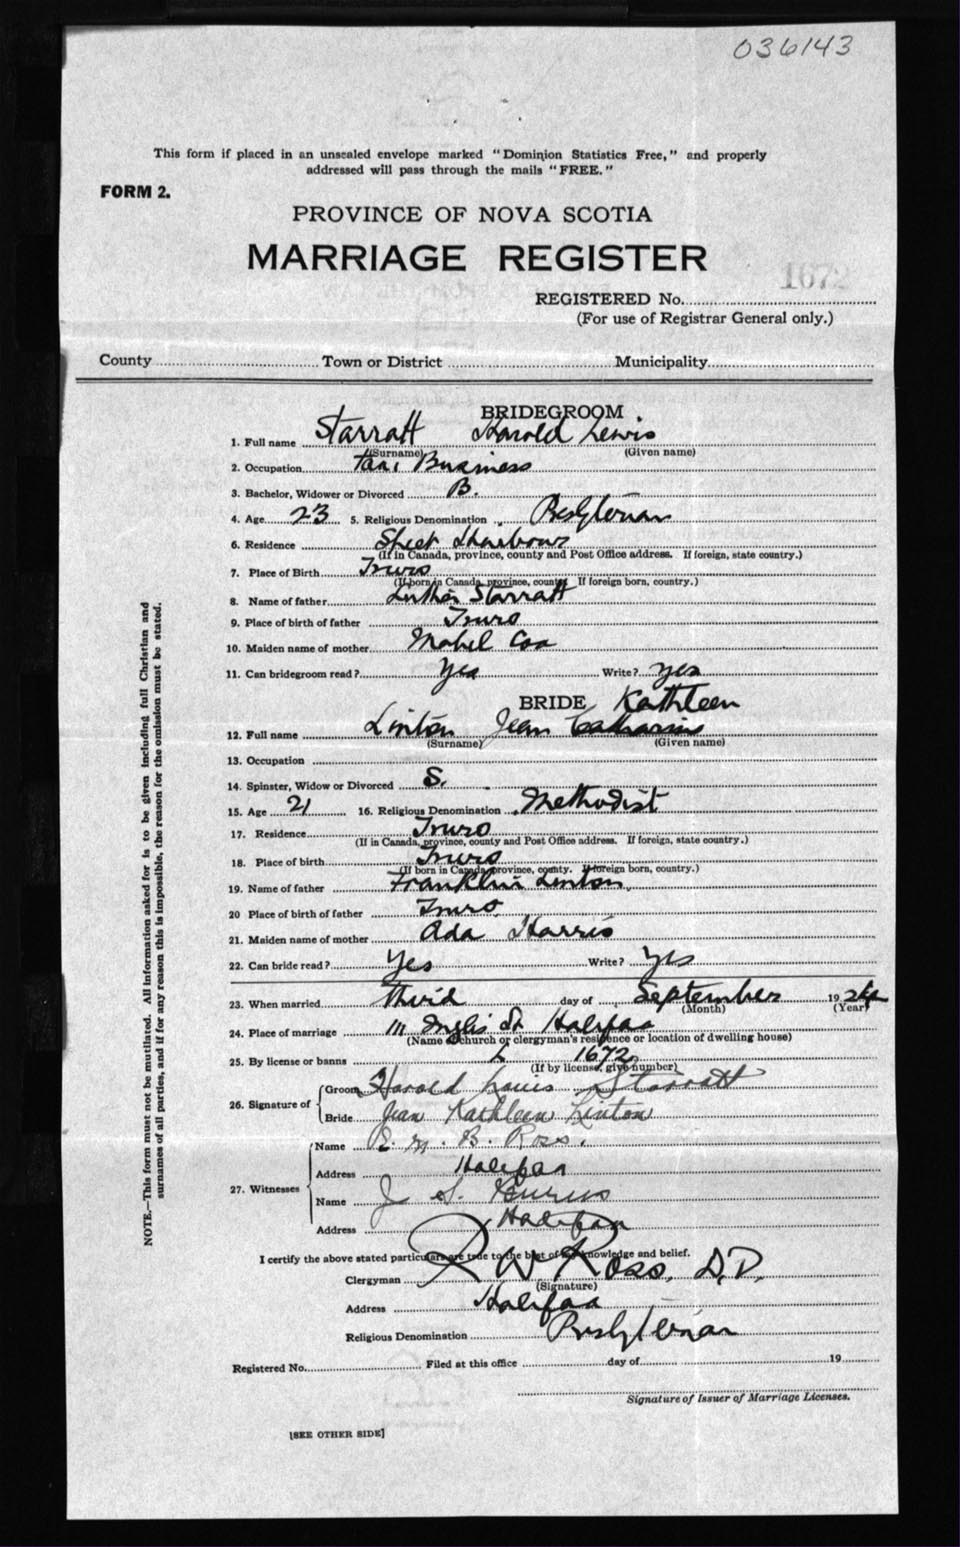 036143
This form if placed in an unsealed envelope marked "Dominion Statistics Free," and properly
addressed will pass through the mails "FREE."
FORM 2.
PROVINCE OF NOVA SCOTIA
MARRIAGE REGISTER
1672
REGISTERED No.
(For use of Registrar General only.)
County Town or District Municipality
BRIDEGROOM
1. Full name Starratt Harold Lewis
(Surname) (Given name)
2. Occupation Taxi Business
3. Bachelor, Widower or Divorced B.
4. Age 23 5. Religious Denomination Presbyterian
6. Residence Sheet Harbour
(If in Canada, province, county and Post Office address. If foreign, state country.)
7. Place of Birth Truro
(If born in Canada, province, county. If foreign born, country.)
8. Name of father Luther Starratt
9. Place of birth of father Truro
10. Maiden name of mother Mabel Cox
11. Can bridegroom read? Yes Write? Yes
BRIDE Kathleen
12. Full name Linton Jean Catharine
(Surname) (Given name)
13. Occupation
14. Spinster, Widow or Divorced S.
15. Age 21 16. Religious Denomination Methodist
17. Residence Truro
(If in Canada, province, county and Post Office address. If foreign, state country.)
18. Place of birth Truro
(If born in Canada, province, county. If foreign born, country.)
19. Name of father Franklin Linton
20 Place of birth of father Truro
21. Maiden name of mother Ada Harris
22. Can bride read? Yes Write? Yes
23. When married Third day of September 1924
(Month) (Year)
24. Place of marriage Inglis St Halifax
(Name of church or clergyman's residence or location of dwelling house)
25. By license or banns L 1672
(If by license, give number)
26. Signature of Groom Harold Louis Starratt
Bride Jean Kathleen Linton
27. Witnesses Name E. M. B. Ross.
Address Halifax
Name J S. Burns
Address Halifax
I certify the above stated particulars are true to the best of my knowledge and belief.
Clergyman R W Ross, D.D.
(Signature)
Address Halifax
Religious Denomination Presbyterian
Registered No. Filed at this office day of 19
Signature of Issuer of Marriage Licenses.
[SEE OTHER SIDE]
NOTE.—This form must not be mutilated. All information asked for is to be given including full Christian and
surnames of all parties, and if for any reason this is impossible, the reason for the omission must be stated.